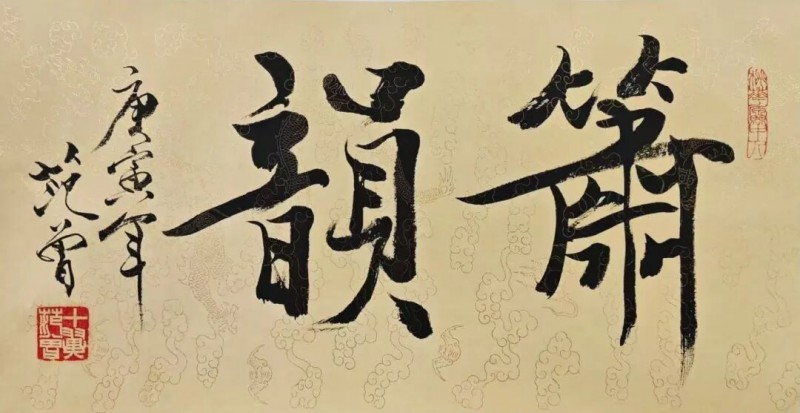 簫韻
庚寅年
范曾
十翼
范曾